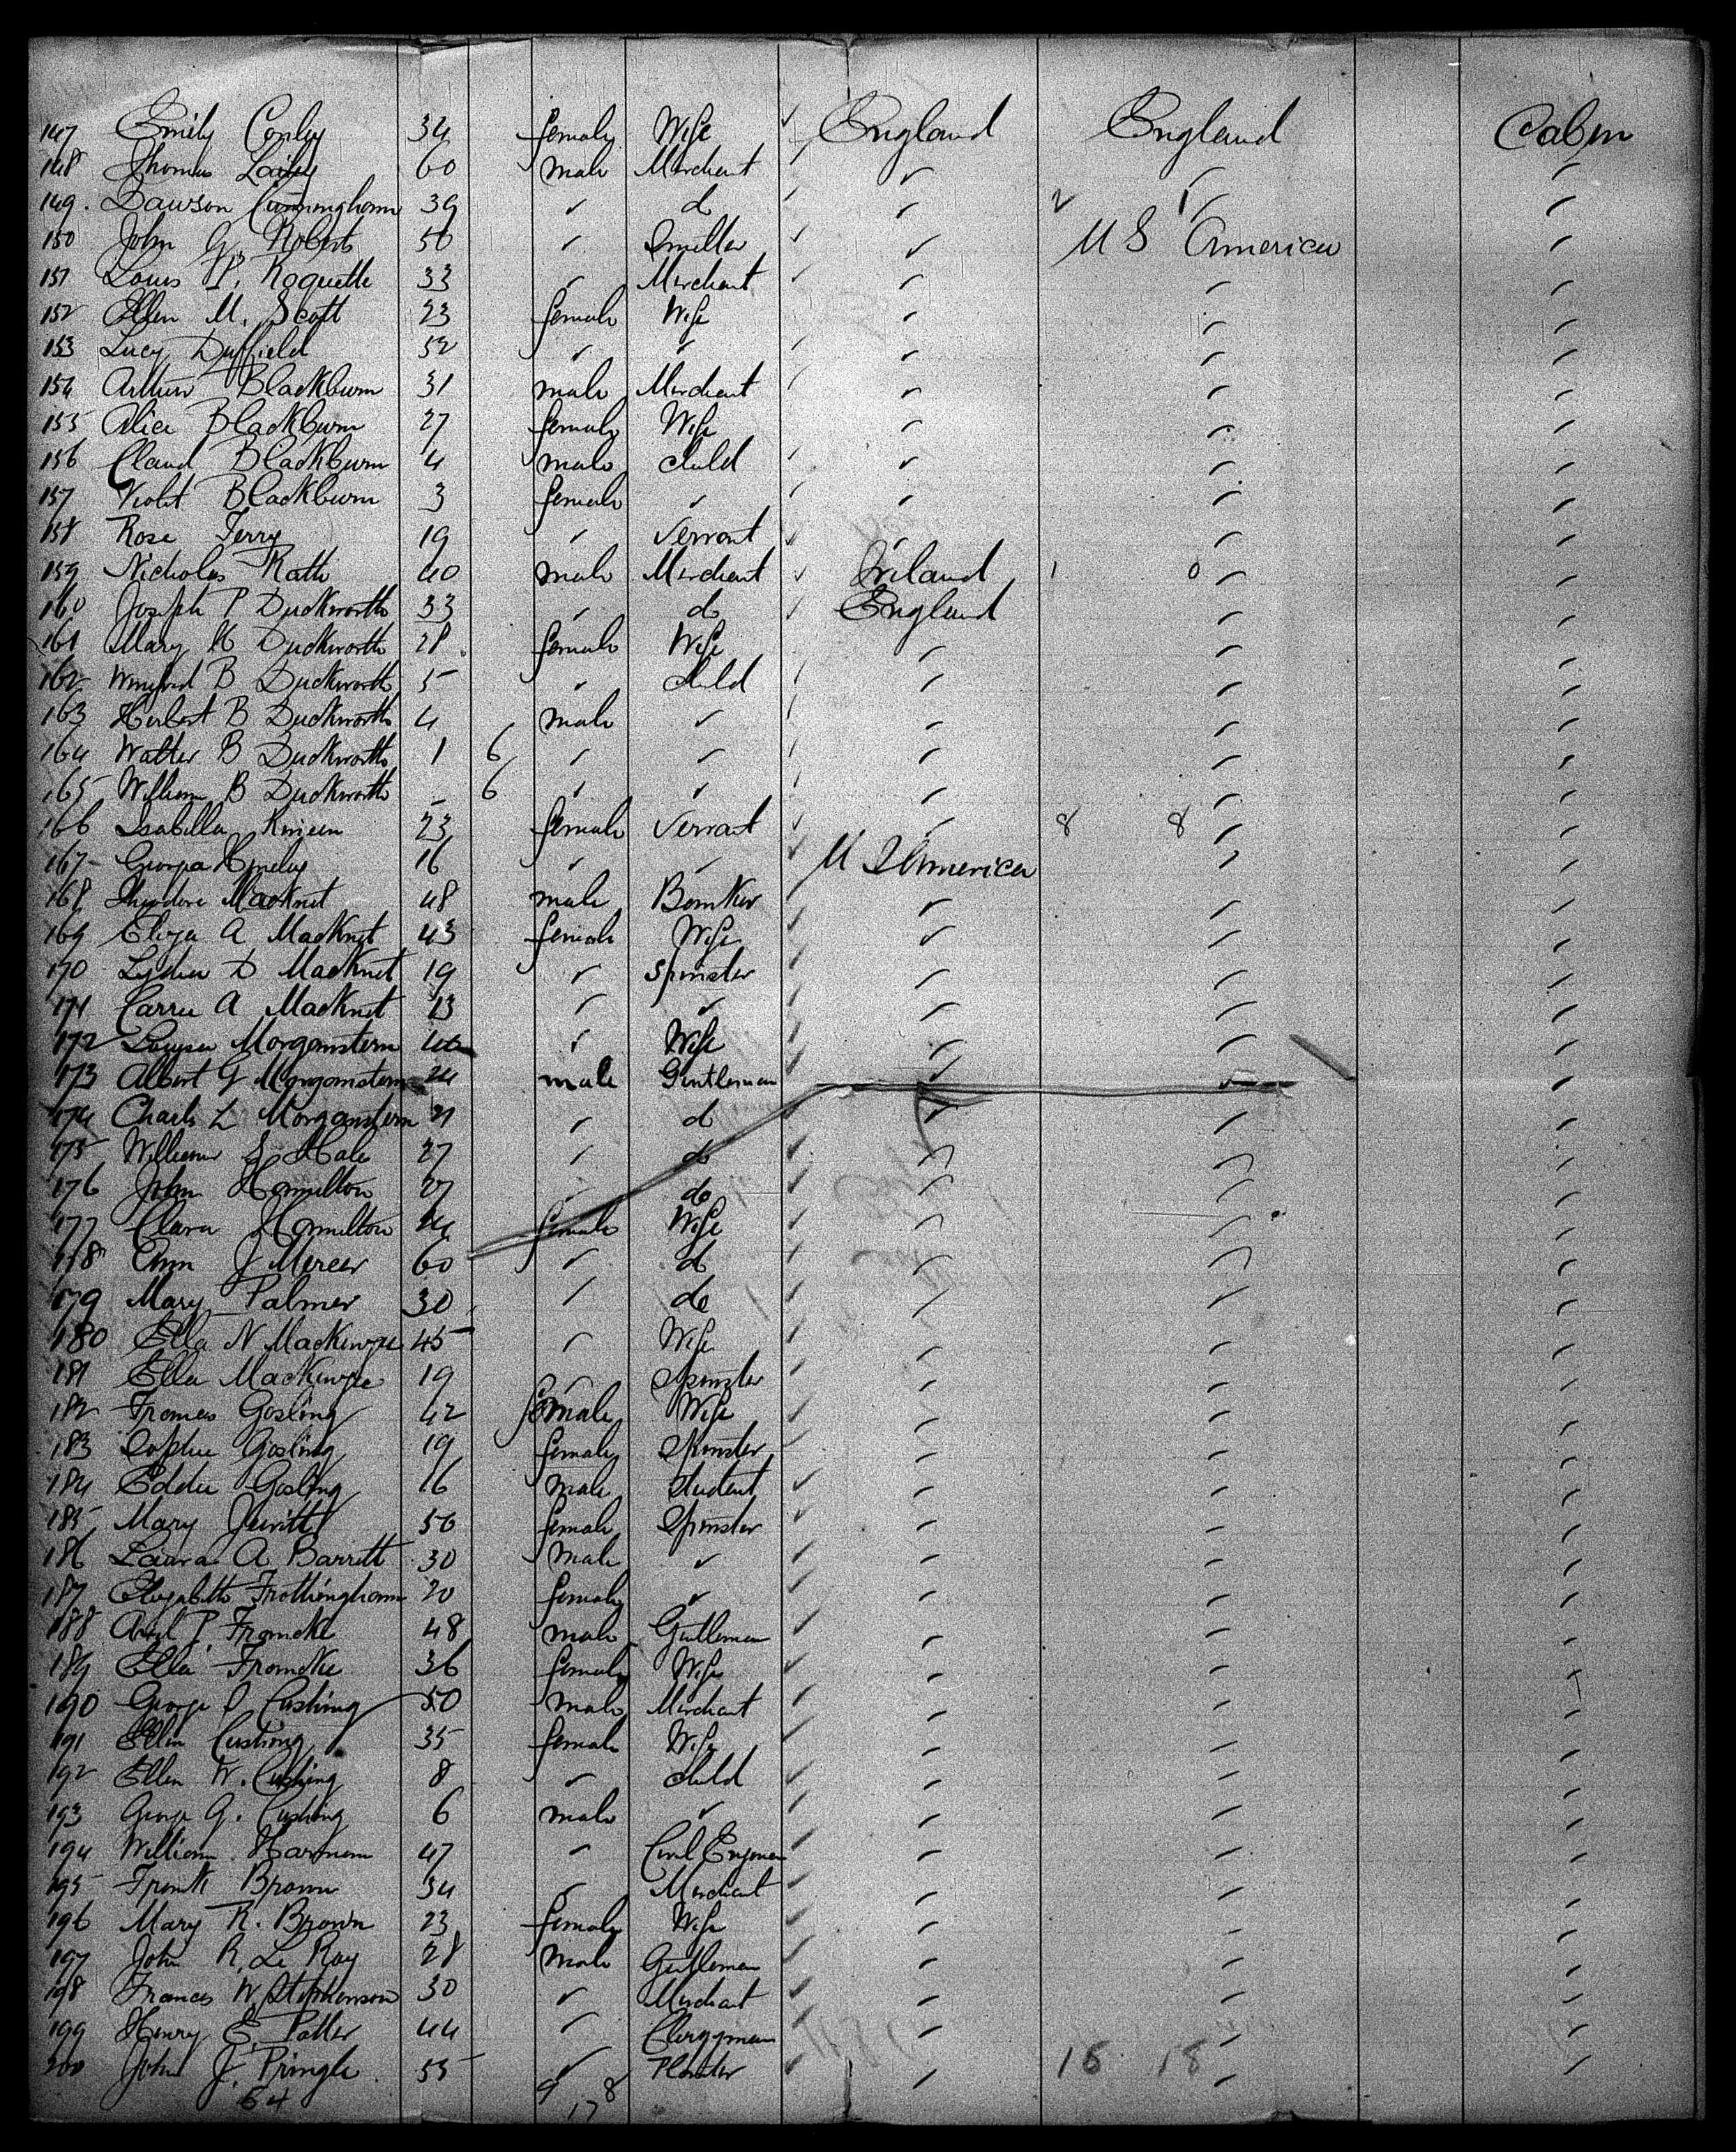 147 Emily Conley 34 female Wife ✓ England England Cabin
148 Thomas 60 male Merchant ✓ ✓ ✓ ✓
149. Dawson Cunningham 39 ✓ do ✓ ✓ 2 1 ✓ ✓
150 John G. Roberts 50 ✓ Smelter ✓ ✓ U S America ✓
151 Louis P. Roquette 33 ✓ Merchant ✓ ✓ ✓ ✓
152 Ellen M. Scott 23 female Wife ✓ ✓ ✓ ✓
153 Lucy Duffield 52 ✓ ✓ ✓ ✓ ✓ ✓
154 Arthur Blackburn 31 male Merchant ✓ ✓ ✓ ✓
155 Alice Blackburn 27 female Wife ✓ ✓ ✓ ✓
156 Claud Blackburn 4 male Child ✓ ✓ ✓ ✓
157 Violet Blackburn 3 female ✓ ✓ ✓ ✓ ✓
158 Rose Terry 19 ✓ Servant ✓ ✓ ✓ ✓
159 Nicholas Rath 40 male Merchant ✓ Ireland 1 0 ✓ ✓
160 Joseph P Duckworth 33 ✓ do ✓ England ✓ ✓
161 Mary H Duckworth 28 female Wife ✓ ✓ ✓ ✓
162 Winifred B Duckworth 5 ✓ Child ✓ ✓ ✓ ✓
163 Herbert B Duckworth 4 male ✓ ✓ ✓ ✓ ✓
164 Walter B Duckworth 1 6 ✓ ✓ ✓ ✓ ✓ ✓
165 William B Duckworth - 6 ✓ ✓ ✓ ✓ ✓ ✓
166 Isabella 23 female Servant ✓ ✓ 8 8 ✓ ✓
167 Georga 16 ✓ ✓ ✓ U S America ✓ ✓
168 Theodore Macknet 48 male Banker ✓ ✓ ✓ ✓
169 Eliza A Macknet 43 female Wife ✓ ✓ ✓ ✓
170 Lydia D Macknet 19 ✓ Spinster ✓ ✓ ✓ ✓
171 Carrie A Macknet 13 ✓ ✓ ✓ ✓ ✓ ✓
172 Louisa Morganstern ✓ Wife ✓ ✓ ✓ ✓
173 Albert G Morganstern 24 male Gentleman ✓ ✓ ✓ ✓
174 Charles L Morganstern 21 ✓ do ✓ ✓ ✓ ✓
175 William S. Hale 27 ✓ do ✓ ✓ ✓ ✓
176 John Hamilton 27 ✓ do ✓ ✓ ✓ ✓
177 Clara Hamilton 24 female Wife ✓ ✓ ✓ ✓
178 Ann J Mercer 60 ✓ do ✓ ✓ ✓ ✓
179 Mary Palmer 30 ✓ do ✓ ✓ ✓ ✓
180 Ella N Mackenzie 45 ✓ Wife ✓ ✓ ✓ ✓
181 Ella Mackenzie 19 ✓ Spinster ✓ ✓ ✓ ✓
182 Frances Gosling 42 female Wife ✓ ✓ ✓ ✓
183 Sophie Gosling 19 female Spinster ✓ ✓ ✓ ✓
184 Eddie Gosling 16 male Student ✓ ✓ ✓ ✓
185 Mary Jewitt 50 female Spinster ✓ ✓ ✓ ✓
186 Laura A Barrett 30 male ✓ ✓ ✓ ✓ ✓
187 Elizabeth Frothingham 20 female ✓ ✓ ✓ ✓ ✓
188 P Francke 48 male Gentleman ✓ ✓ ✓ ✓
189 Ella Francke 36 female Wife ✓ ✓ ✓ ✓
190 George S Cushing 50 male Merchant ✓ ✓ ✓ ✓
191 Ellen Cushing 35 female Wife ✓ ✓ ✓ ✓
192 Ellen W. Cushing 8 ✓ Child ✓ ✓ ✓ ✓
193 George G. Cushing 6 male ✓ ✓ ✓ ✓ ✓
194 William Harmem 47 ✓ Civil Engineer ✓ ✓ ✓ ✓
195 Frank Brown 34 ✓ Merchant ✓ ✓ ✓ ✓
196 Mary R. Brown 23 female Wife ✓ ✓ ✓ ✓
197 John R. Le Roy 28 male Gentleman ✓ ✓ ✓ ✓
198 Frances W. Stephenson 30 ✓ Merchant ✓ ✓ ✓ ✓
199 Henry C. Potter 44 ✓ Clergyman ✓ ✓ ✓ ✓
200 John J. Pringle 55 ✓ Planter ✓ ✓ 16 18 ✓ ✓
54 9 8
17